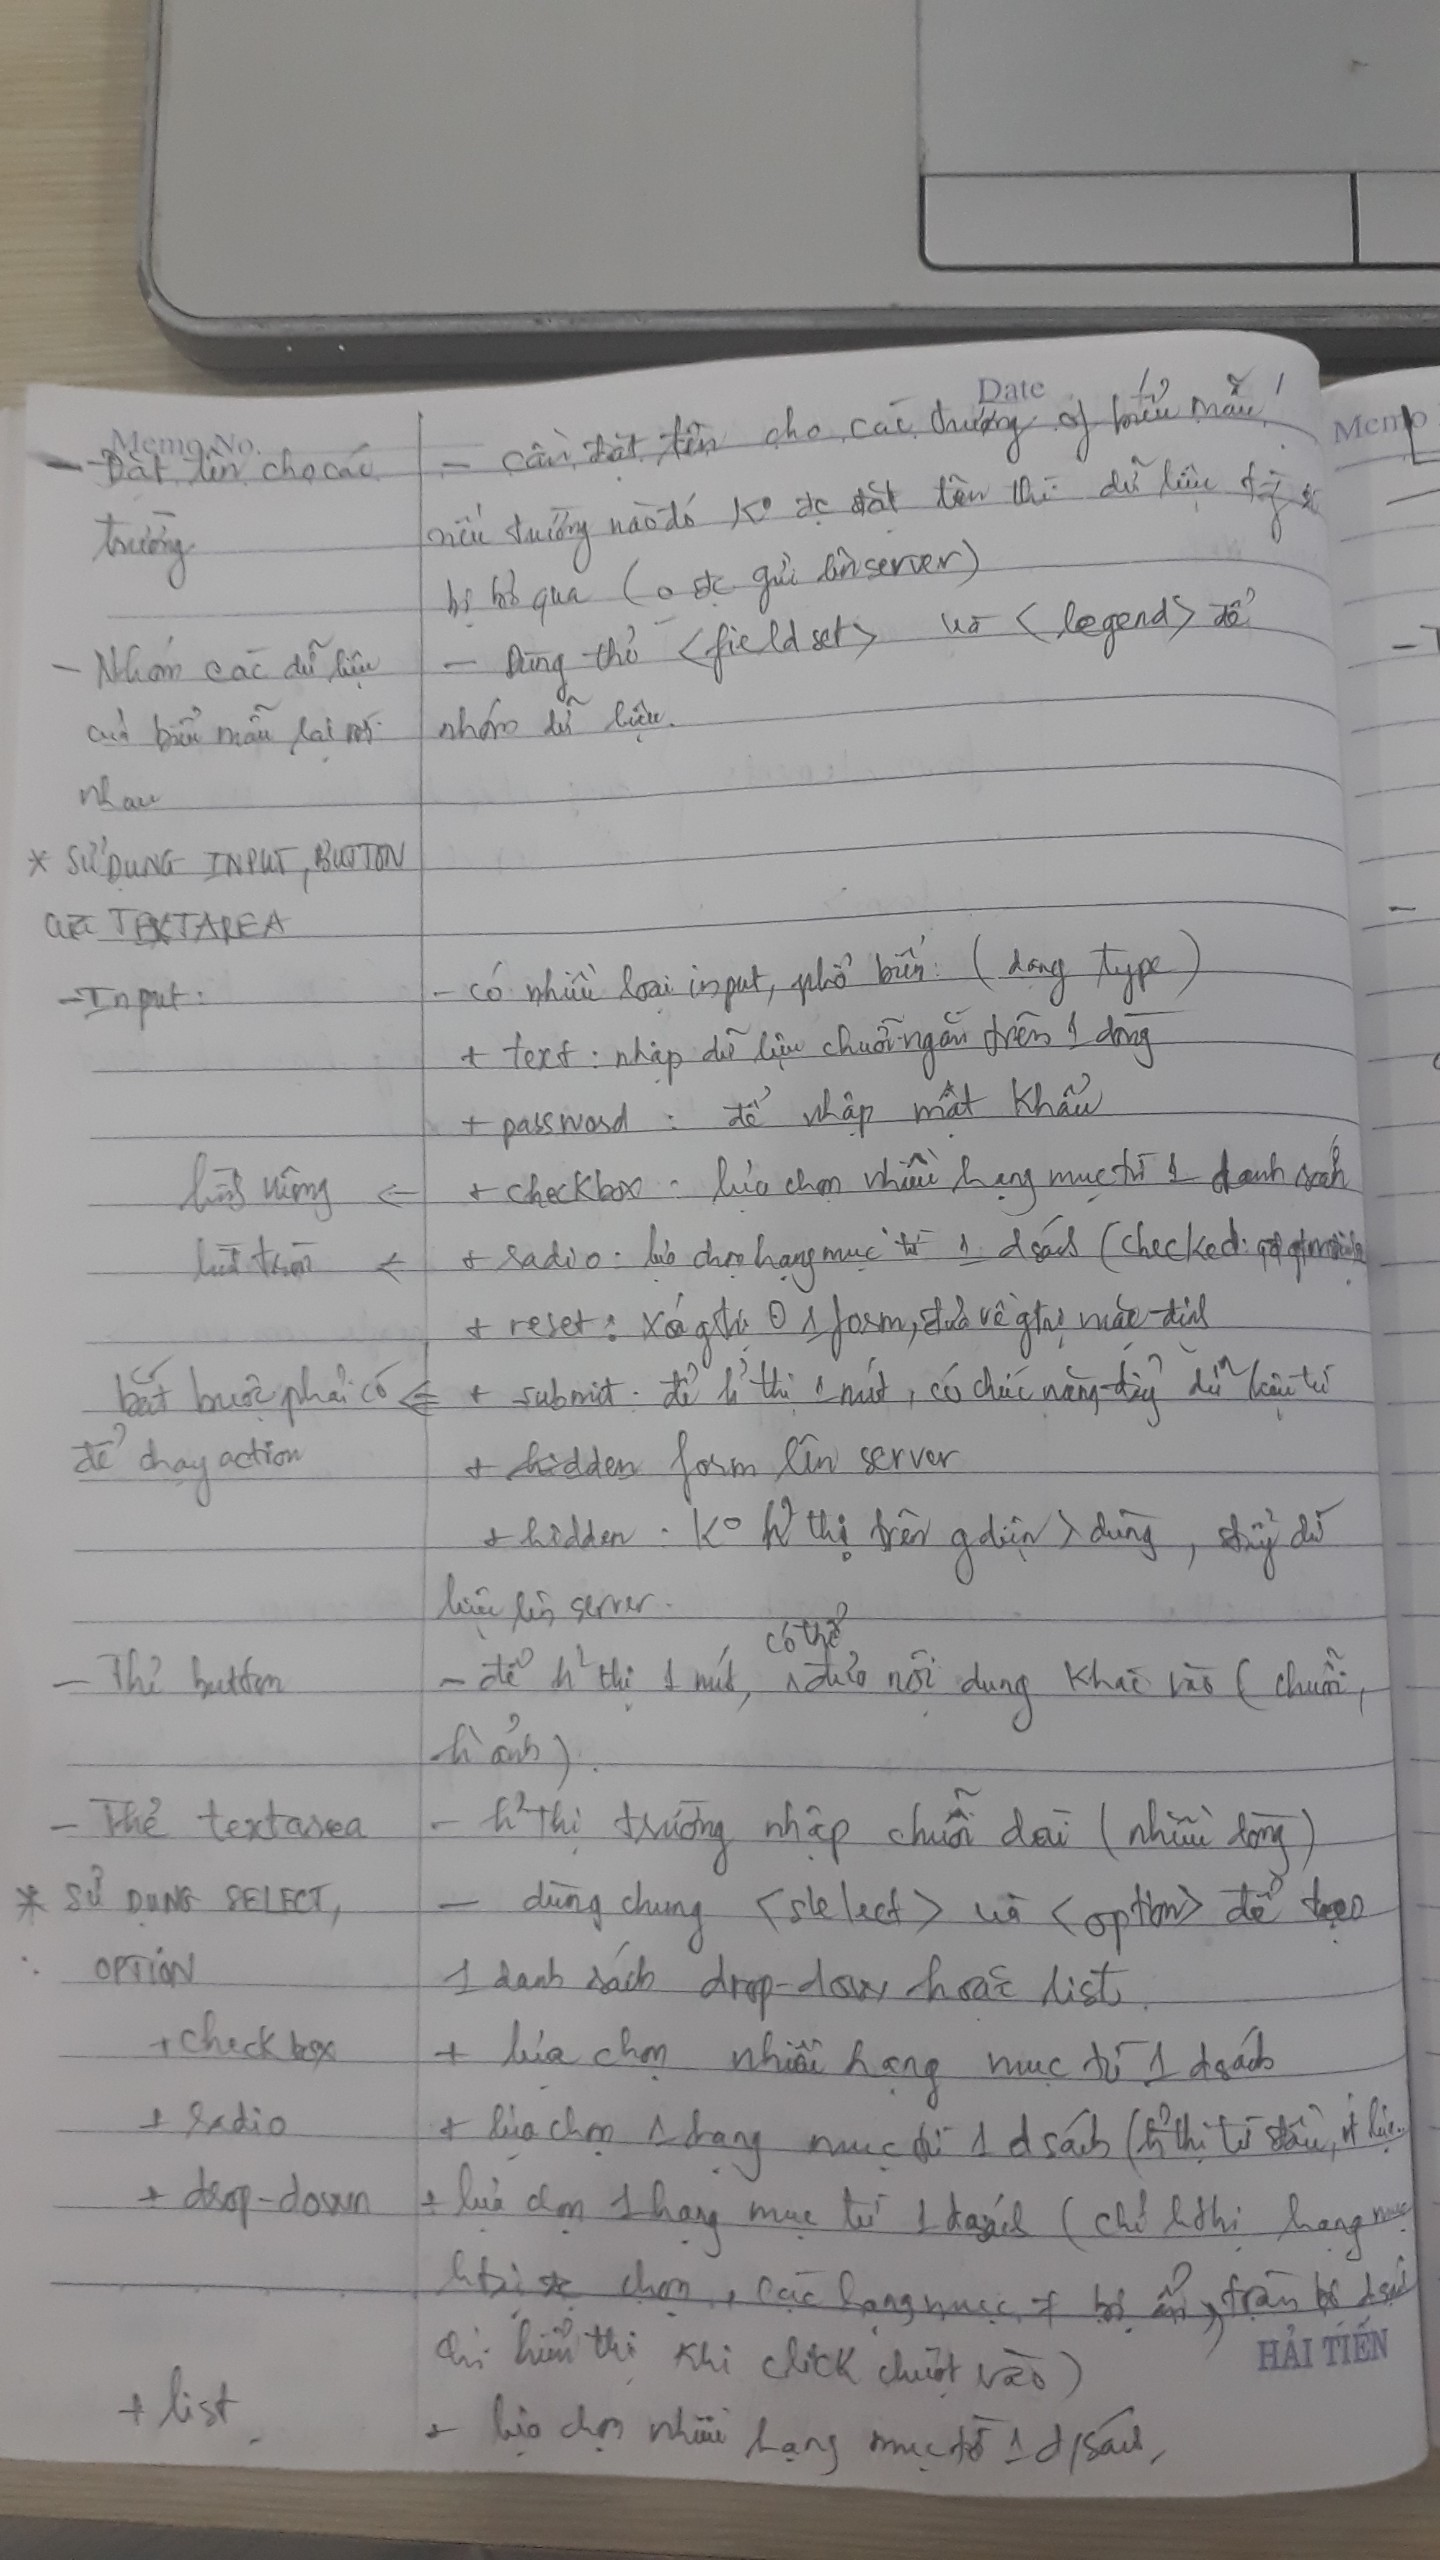 Date
Memo No.
Memo
- Đặt tên cho các - cần đặt tên cho các trường of biểu mẫu
trường nếu trường nào đó K° đc đặt tên thì dữ liệu
bị bỏ qua ( o đc gửi lên server)
- Nhóm các dữ liệu - Dùng thẻ <fieldset> và <legend> để
của biểu mẫu lại với nhóm dữ liệu.
nhau
* SỬ DỤNG INPUT, BUTTON
VÀ TEXTAREA
- Input: - có nhiều loại input, phổ biến: (dạng type)
+ text: nhập dữ liệu chuỗi ngắn trên 1 dòng
+ password : để nhập mật khẩu
hình vuông <- + checkbox: lựa chọn nhiều hạng mục từ 1 danh sách
hình tròn <- + radio: lựa chọn hạng mục từ 1 dsách (checked:
+ reset: xóa gtrị 1 form, đưa về gtrị mặc định
bắt buộc phải có <= + submit: để h² thị 1 nút, có chức năng đẩy dữ liệu từ
để chạy action + hidden form lên server
+ hidden: K° h² thị trên g diện > dùng, đẩy dữ
liệu lên server.
có thể
- Thẻ button - để h² thị 1 nút, đưa nội dung khác vào (chuỗi,
h ảnh).
- Thẻ textarea - h² thị trường nhập chuỗi dài (nhiều dòng)
* SỬ DỤNG SELECT, - dùng chung <slelect> và <option> để tạo
OPTION 1 danh sách drop-down hoặc list.
+ checkbox + lựa chọn nhiều hạng mục từ 1 dsách
+ radio + lựa chọn 1 hạng mục từ 1 dsách (h² thị từ đầu,
+ drop-down + lựa chọn 1 hạng mục từ 1 dsách (chỉ h thị hạng mục
chọn, các hạng mục bị ẩn, dsách
chỉ hiển thị khi click chuột vào)
HẢI TIẾN
+ list + lựa chọn nhiều hạng mục từ 1 dsách,